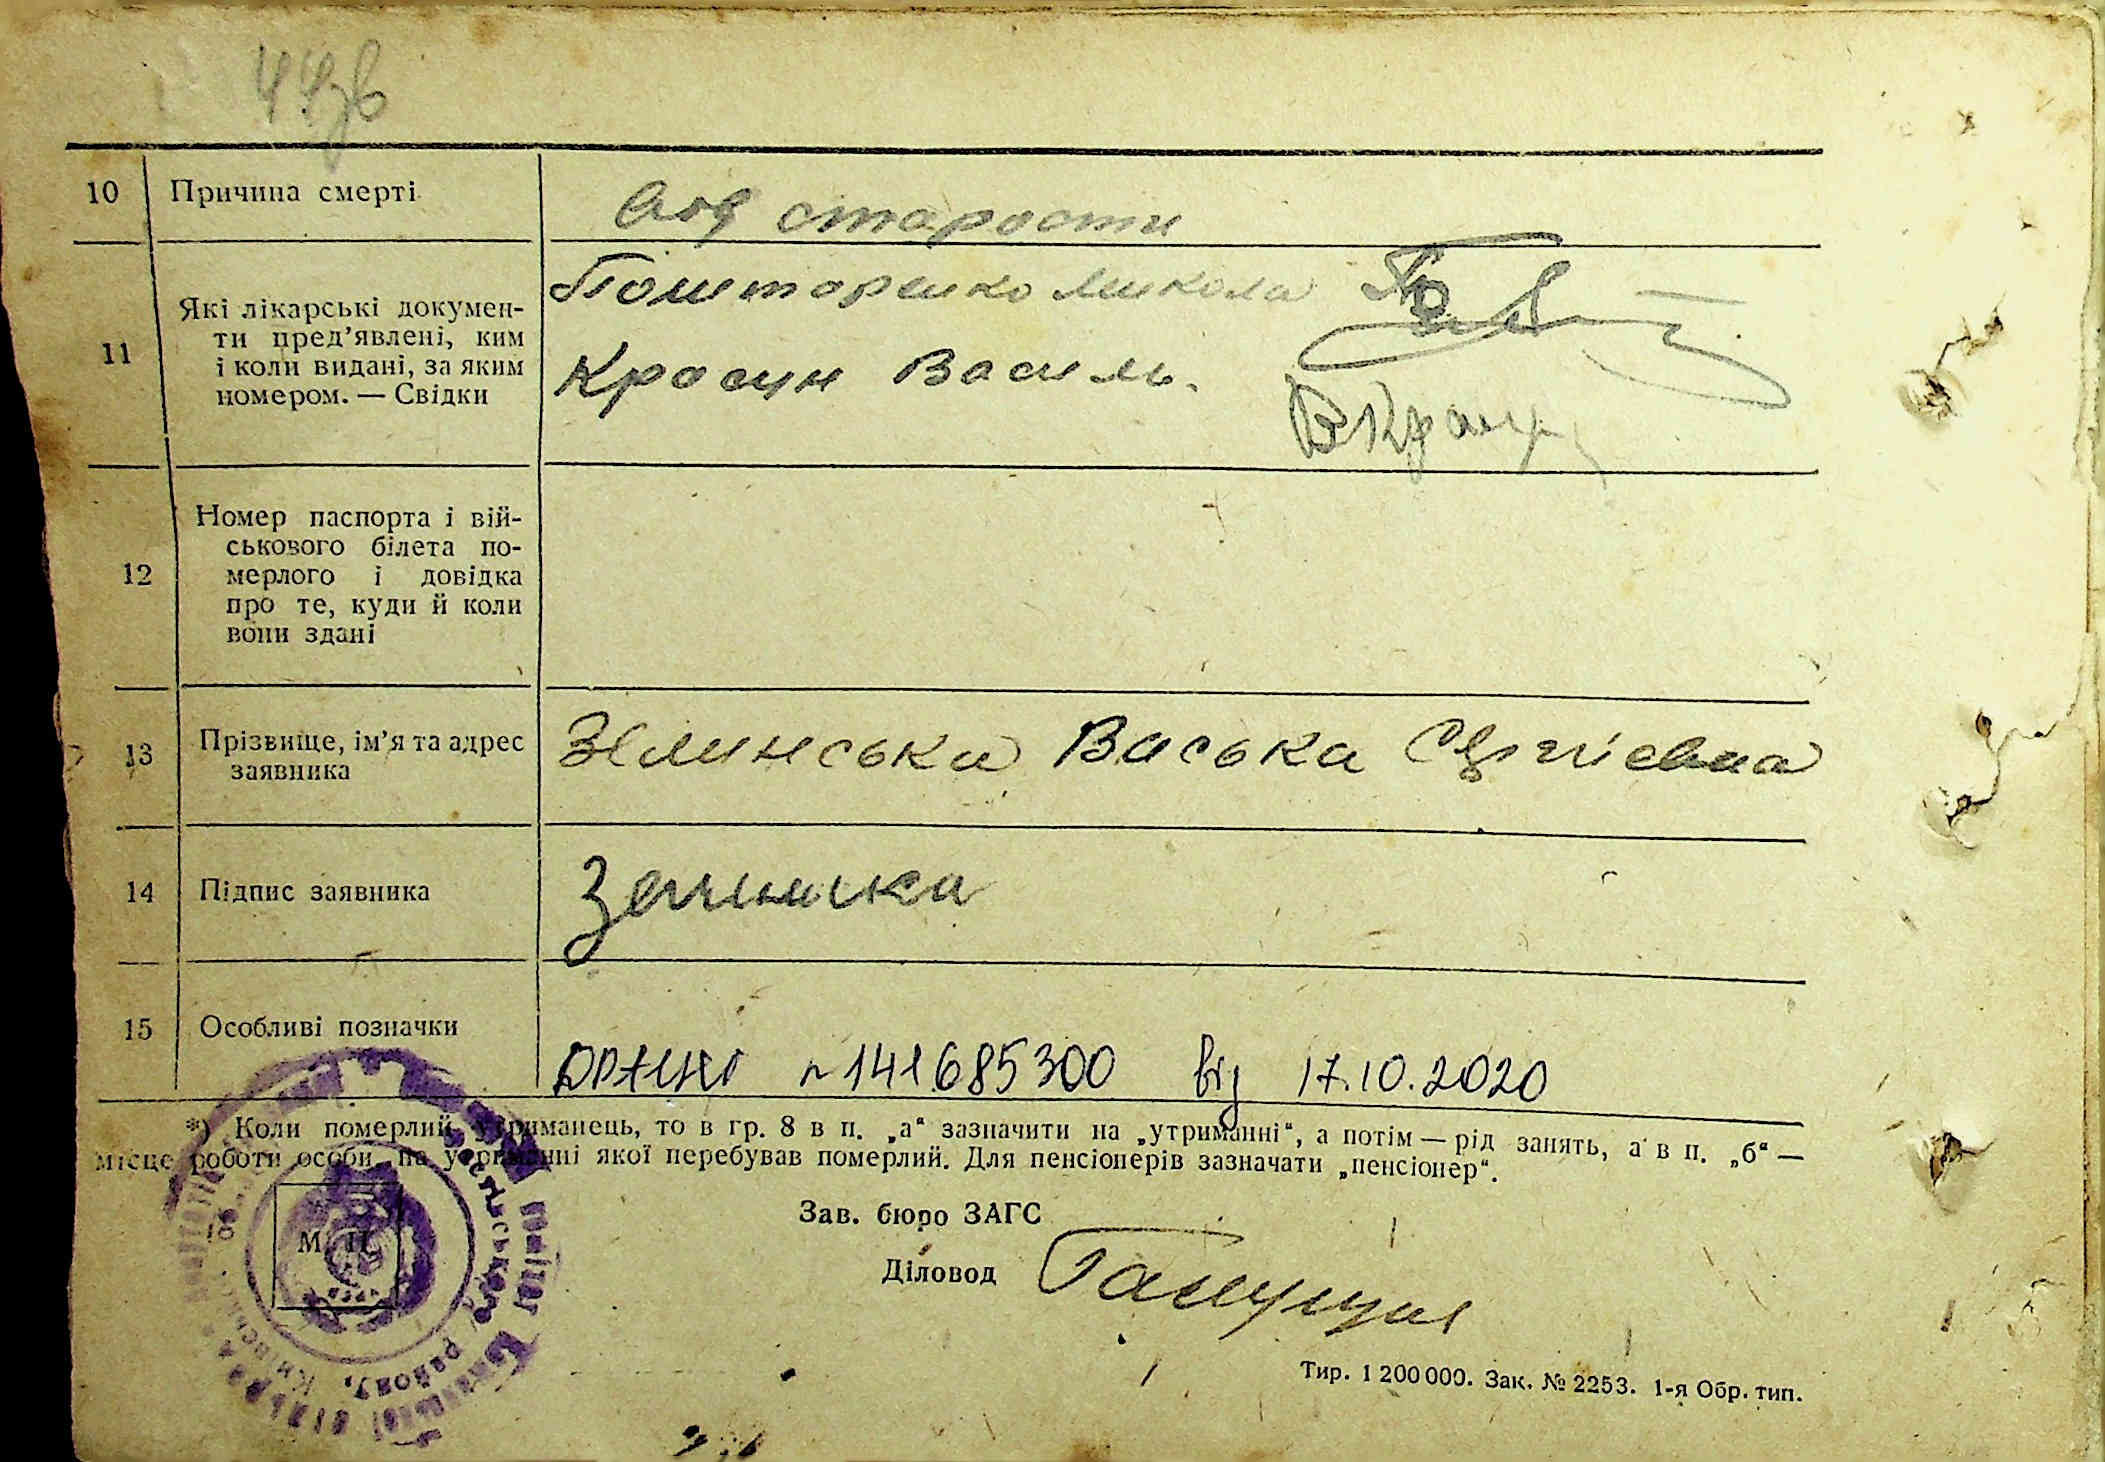 44зв
10 Причина смерті
Од старости
11 Які лікарські докумен-
ти пред’явлені, ким
і коли видані, за яким
номером. — Свідки
Микола
Красун Василь.
12 Номер паспорта і вій-
ськового білета по-
мерлого і довідка
про те, куди й коли
вони здані
13 Прізвище, ім’я та адрес
заявника
Зелинська Васька Сергієвна
14 Підпис заявника
15 Особливі позначки
ДРАЦСГ №141685300 від 17.10.2020
*) Коли померлий утриманець, то в гр. 8 в п. „а“ зазначити на „утриманні“, а потім — рід занять, а в п. „б“ —
місце роботи особи, на утриманні якої перебував померлий. Для пенсіонерів зазначати „пенсіонер“.
М. П.
Зав. бюро ЗАГС
Діловод
Тир. 1 200 000. Зак. № 2253. 1-я Обр. тип.